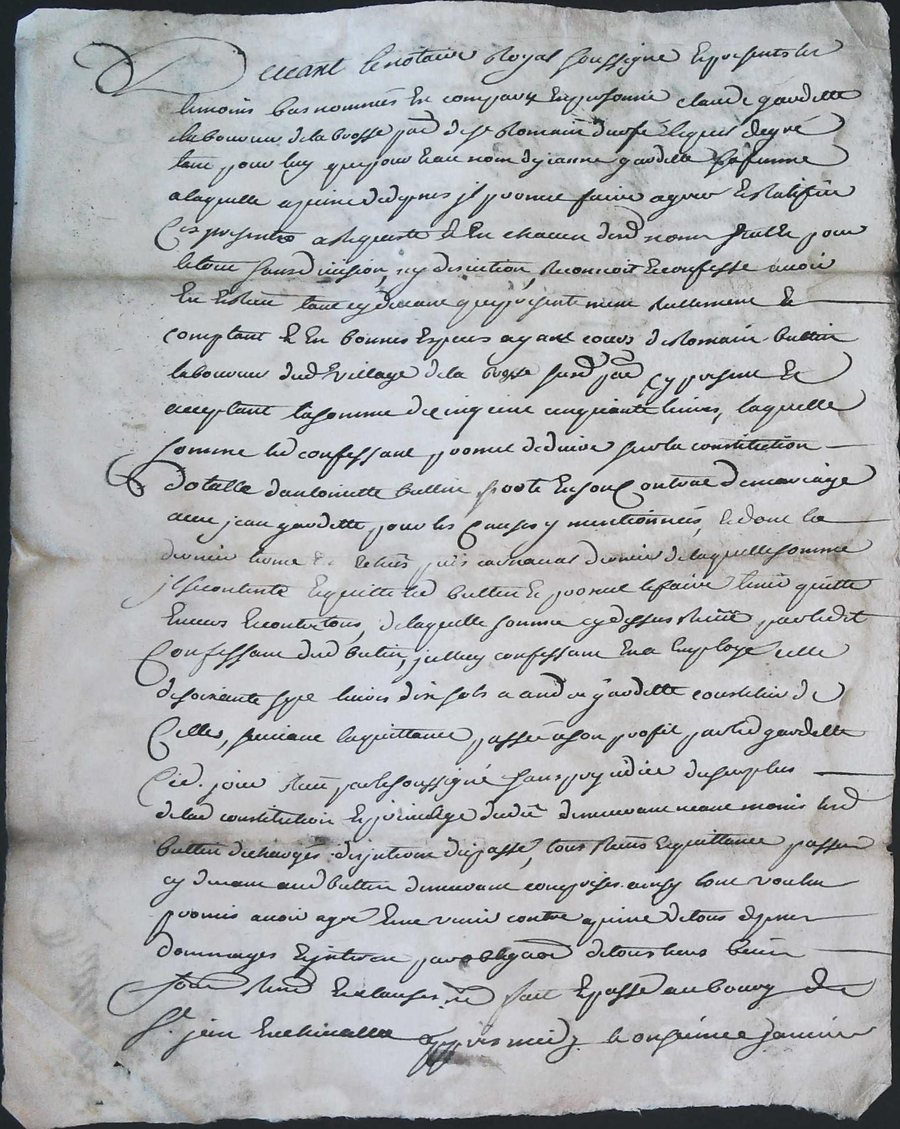 Devant le notaire Royal soussigne et presents les
temoins bas nommés En comparu En personne claude gardette
laboureur de la brosse par de st Romain durfé lequel de gré
tant pour luy que pour et au nom de jeanne gardette sa femme
a laquelle a peine de depens jl promet faire agreer et Ratifier
Ces presentes a sa Requeste et En chacun desd noms seul et pour
le tout sans division, ny discution, Reconnoit et confesse avoir
Eu et Receu tant cy devant que presentement Reellement et
comptant et En bonnes Especes ayant cours de Romain buttin
laboureur dud village de la brosse susd par cy present et
acceptant la somme de cinquante livres, laquelle
somme led confessant promet deduire sur la constitution
dotalle d'antoinette buttin porté En son Contrat de mariage
avec jean gardette pour les Causes y mentionnées, et dont le
dernier terme est carnaval dernier de laquelle somme
jl se contente et quitte led buttin et promet le faire tenir quitte
Envers et contre tous, de laquelle somme cy dessus Receue par ledit
Confessant dud butin, jcelluy confessant En a Employé celle
de soixante sept livres dix sols a andré gardette
Celles, suivant la quittance passé a son profit par led gardette
Ce d. jour Receu par le soussigné sans prejudice du surplus
de lad constitution et privilege moins led
buttin dechargé d'jnterets du passé, tous Receus et quittance passée
cy devant aud buttin demeurant comprises ainsy l'ont voulu
promis avoir agré et ne venir contre a peine de tous depens
dommages et jnterets par obligaon de tous leurs biens
et clauses fait et passé au bourg de
St jean apres midy le onzieme janvier